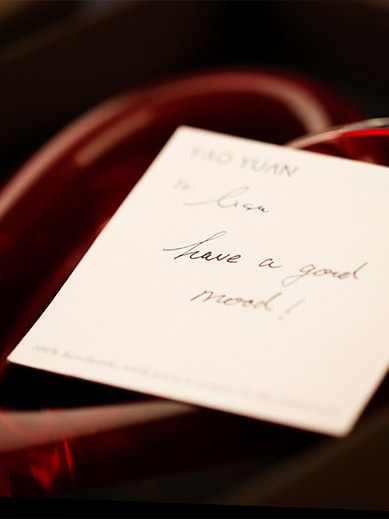 YAO YUAN
To Lisa
have a good
mood!
100% handmade,